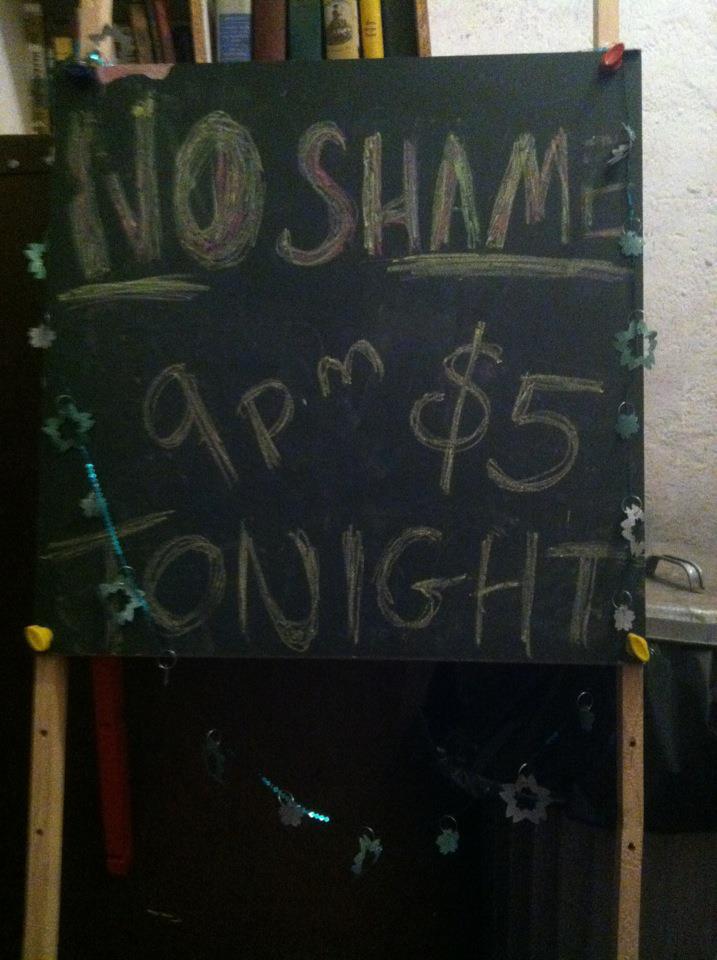 NO SHAME
9pm $5
TONIGHT